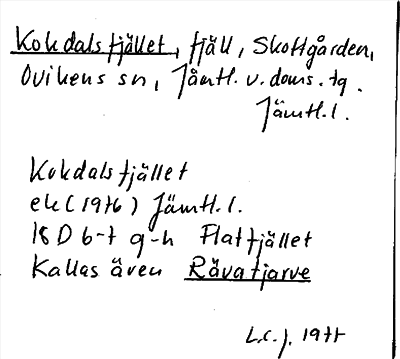 Kokdalsfjället, fjäll, Skottgården,
Ovikens sn, Jämtl. v. doms. tg.
Jämtl. l.
Kokdalsfjället
ek (1976) Jämtl. l.
18 D 6-7 g-h Flatfjället
Kallas även Råvatjarve
L.C.J. 1977